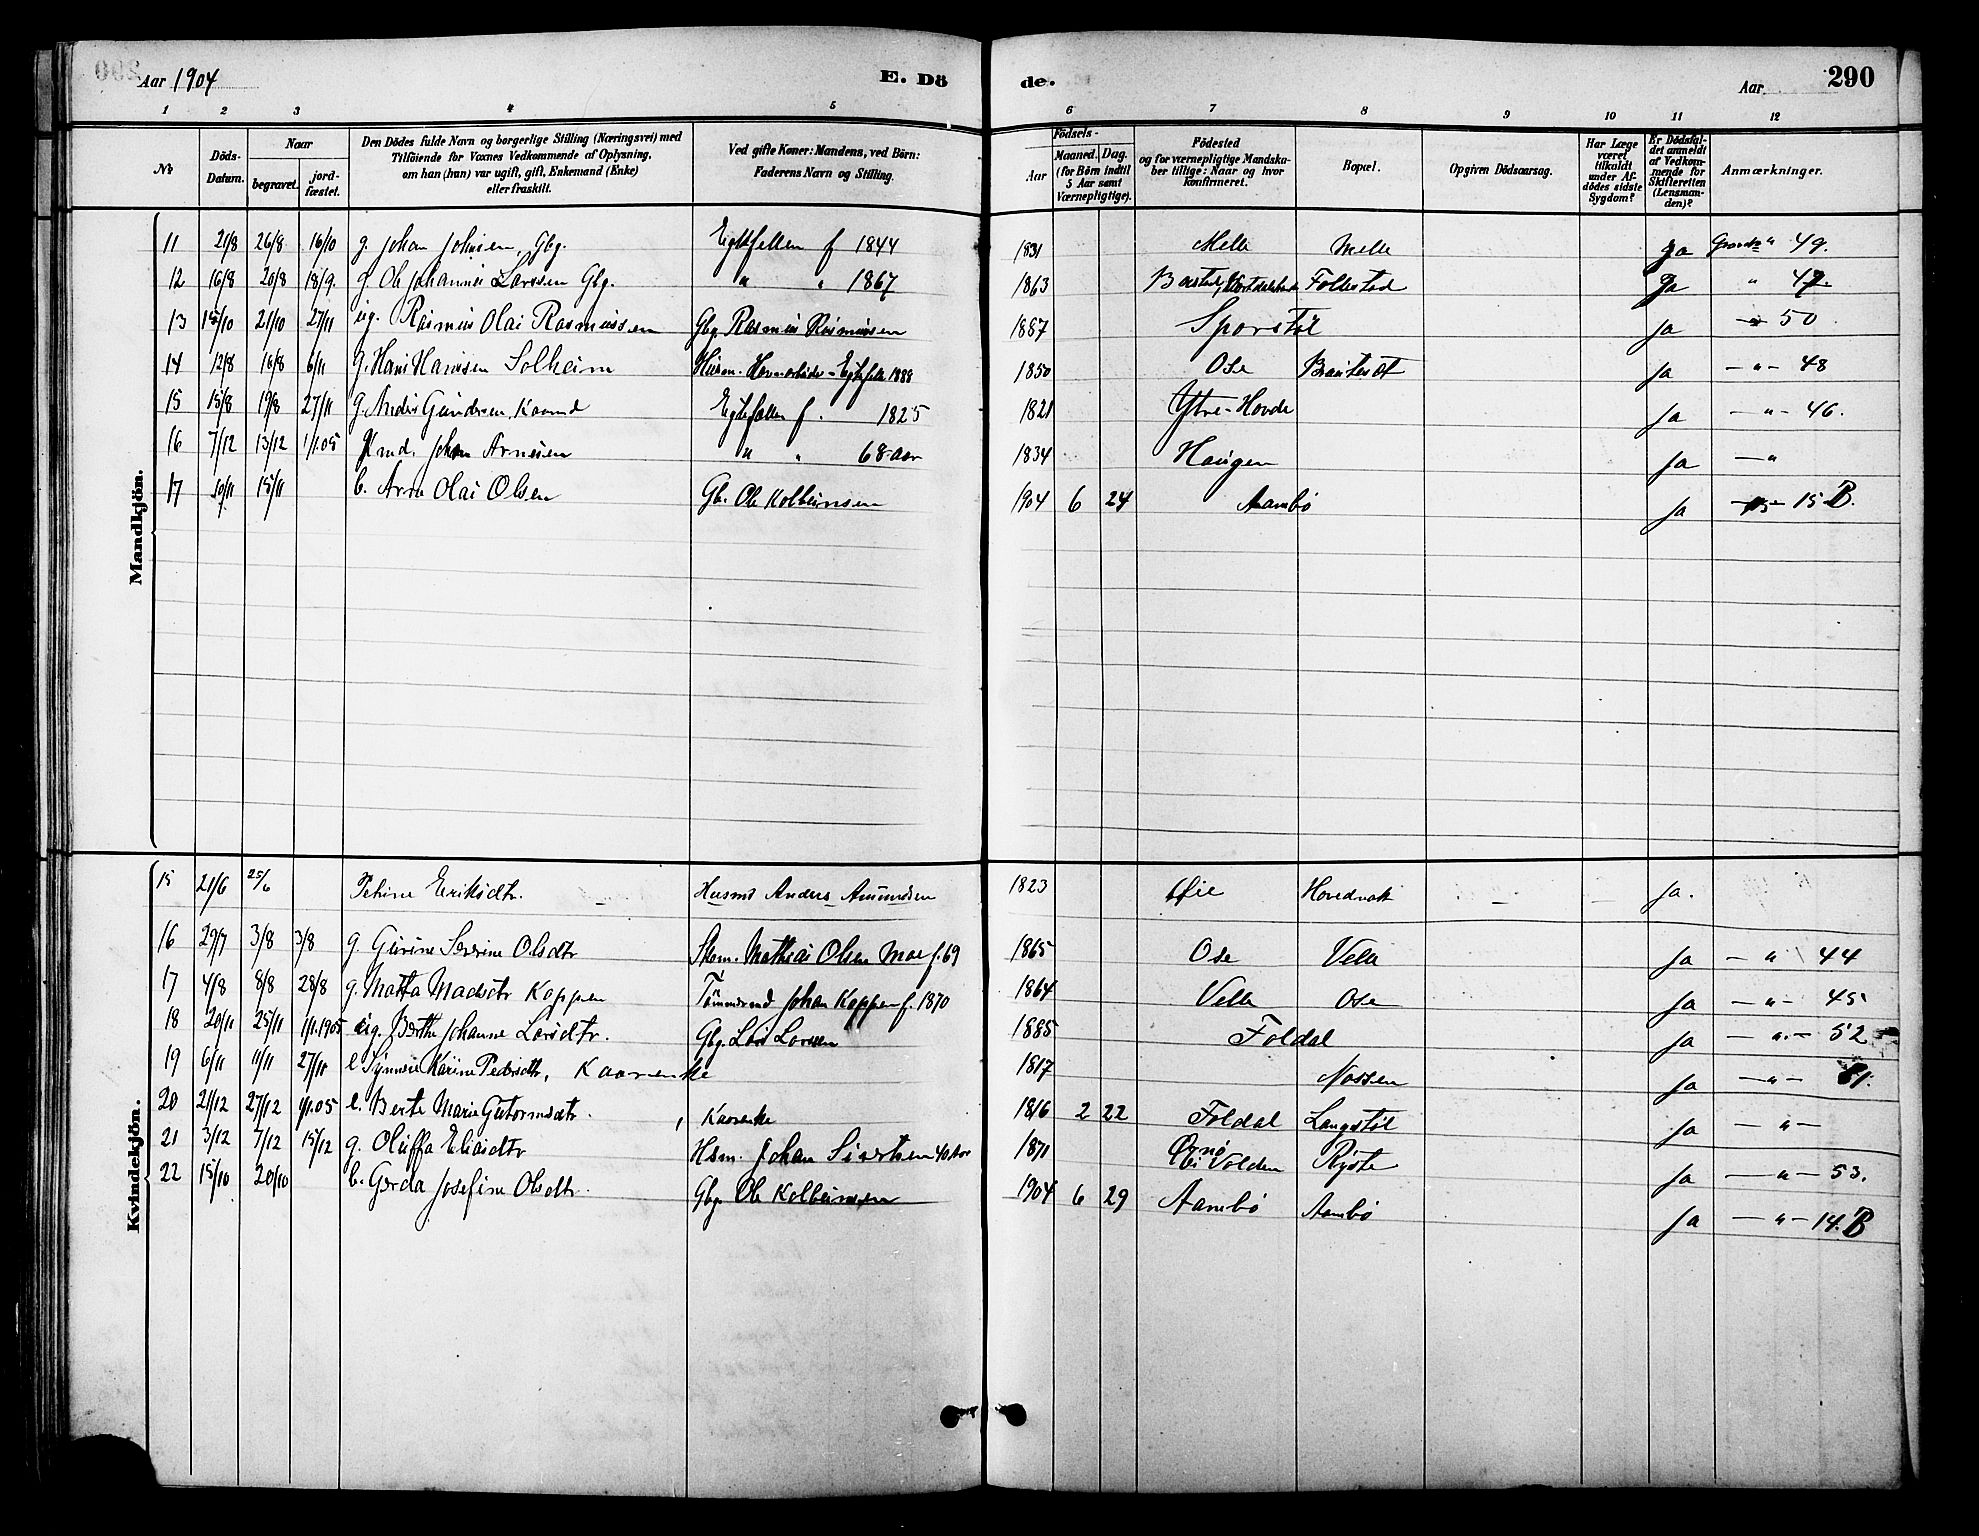 Aar 1904
E. Dö
de.
Aar
290
1 2 3 4 5 6 7 8 9 10 11 12
No
Döds-Datum.
Naar
begravet.
jord-fæstet.
Den Dödes fulde Navn og borgerlige Stilling (Næringsvei) med
Tilföiende for Voxnes Vedkommende af Oplysning,
om han (hun) var ugift, gift, Enkemand (Enke)
eller fraskilt.
Ved gifte Koner: Mandens, ved Börn:
Faderens Navn og Stilling.
Födsels-
Aar
Maaned. Dag.
(for Börn indtil
5 Aar samt
Værnepligtige).
Födested
og for værnepligtige Mandska-
ber tillige: Naar og hvor
konfirmeret.
Bopæl.
Opgiven Dödsaarsag.
Har Læge
været
tilkaldt
under Af-
dödes sidste
Sygdom?
Er Dödsfal-
det anmeldt
af Vedkom-
mende for
Skifteretten
(Lensman-
den)?
Anmærkninger.
Mandkjön.
11 21/8 26/8 16/10 g. Johan Johnsen, Gbg. Egtefellen f 1844 1831 Melle Melle Ja 49.
12 16/8 20/8 18/9. g. Ole Johannes Larssen Gbg. " " 1867 1863 Folkestad Ja " 47.
13 15/10 21/10 27/11 ug. Rasmus Olai Rasmussen Gbg. Rasmus Rasmussen 1887 Sporstøl Ja 50
14 12/8 16/8 6/11 g. Hans Hansen Solheim Egtefelle 1888 1850 Ose Ja - " - 48
15 15/8 19/8 27/11 g. Anders Gundersen, Kaarmd Egtefællen f. 1825 1821 Ytre-Hovde Ja - " - 46.
16 7/12 13/12 1/1.05 Johan Arnesen " " 68-aar 1834 Haugen Ja - "
17 10/11 15/11 b. Arne Olai Olsen Gb. Ole Kolbeinsen 1904 6 24 Aambø Ja 15 B.
Kvindekjön.
15 21/6 25/6 Petrine Eriksdtr. Husmd Anders Amundsen 1823 Øie Ja.
16 29/7 3/8 3/8 g Gurine Severine Olsdtr Mathias Olsen Moe f. 69 1865 Ose Velle Ja - " 44
17 4/8 8/8 28/8 g. Matta Madsdtr Koppen Tömmermd Johan Koppen f. 1870 1864 Velle Ose Ja - " - 45
18 20/11 25/11 1/1.1905 ug. Berthe Johanne Larsdtr. Gbg. Lars Larssen 1885 Foldal Ja - " - 52
19 6/11 11/11 27/11 e Synneve Karine Pedersdtr, Kaarenke 1817 Nossen Ja - " - 51.
20 21/12 27/12 1/1.05 e. Berte Marie Gutormsdtr. Kaarenke 1816 2 22 Foldal Langstøl Ja - " -
21 3/12 7/12 15/12 g. Oluffa Eliasdtr Hsm. Johan Sivertsen 40 Aar 1871 Ørnø i Volden Ryste Ja - " - 53.
22 15/10 20/10 b. Gerda Josefine Olsdtr. Gbg Ole Kolbeinsen 1904 6 29 Aambø Aambø Ja - " - 14. B